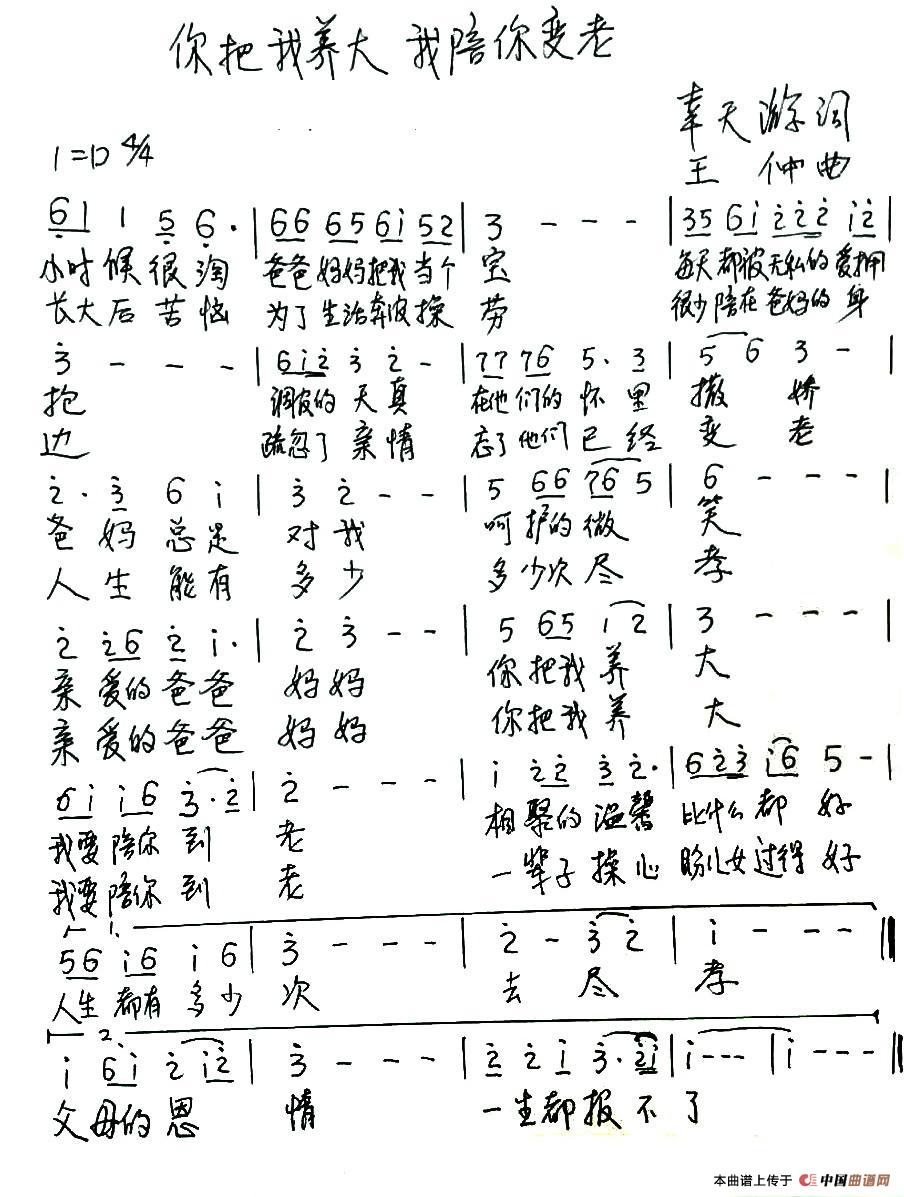 你把我养大 我陪你变老
奉天游词
1=D 4/4
王 仲曲
6̣1 1 5̣ 6̣. | 66 65 6i 52 | 3 - - - | 35 6i i̇2̇2̇2̇ i2̇ |
小时候很淘 爸爸妈妈把我当个 宝 每天都被无私的爱拥
长大后苦恼 为了生活奔波操 劳 很少陪在爸妈的身
3̇ - - - | 6i2̇ 3̇ 2̇ - | 77 76 5. 3 | 5 6 3 - |
抱 调皮的天真 在他们的怀里 撒 娇
边 疏忽了亲情 忘了他们已经 变 老
2̇. 3̇ 6 i | 3̇ 2̇ - - | 5 66 76 5 | 6 - - - |
爸妈总是 对我 呵护的微 笑
人生能有 多少 多少次尽 孝
2̇ 2̇6 2̇ i. | 2̇ 3̇ - - | 5 65 i2̇ | 3̇ - - - |
亲爱的爸爸 妈妈 你把我养 大
亲爱的爸爸 妈妈 你把我养 大
6i i6 3̇.2̇ | 2̇ - - - | i 2̇2̇ 3̇ 2̇. | 62̇3̇ i6 5 - |
我要陪你到 老 相聚的温馨 比什么都 好
我要陪你到 老 一辈子操心 盼儿女过得好
1.
56 i6 i 6 | 3̇ - - - | 2̇ - 3̇ 2̇ | i - - - ||
人生都有多少 次 去 尽 孝
2.
i 6i 2̇ i2̇ | 3̇ - - - | 2̇ 2̇ i 3̇. 2̇i | i - - - | i - - - ||
父母的恩 情 一生都报不了
本曲谱上传于 中国曲谱网